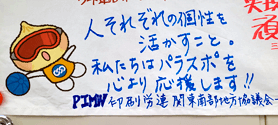 人それぞれの個性を
活かすこと。
私たちはパラスポを
心より応援します!!
PIMW 印刷労連 関東南部地方協議会